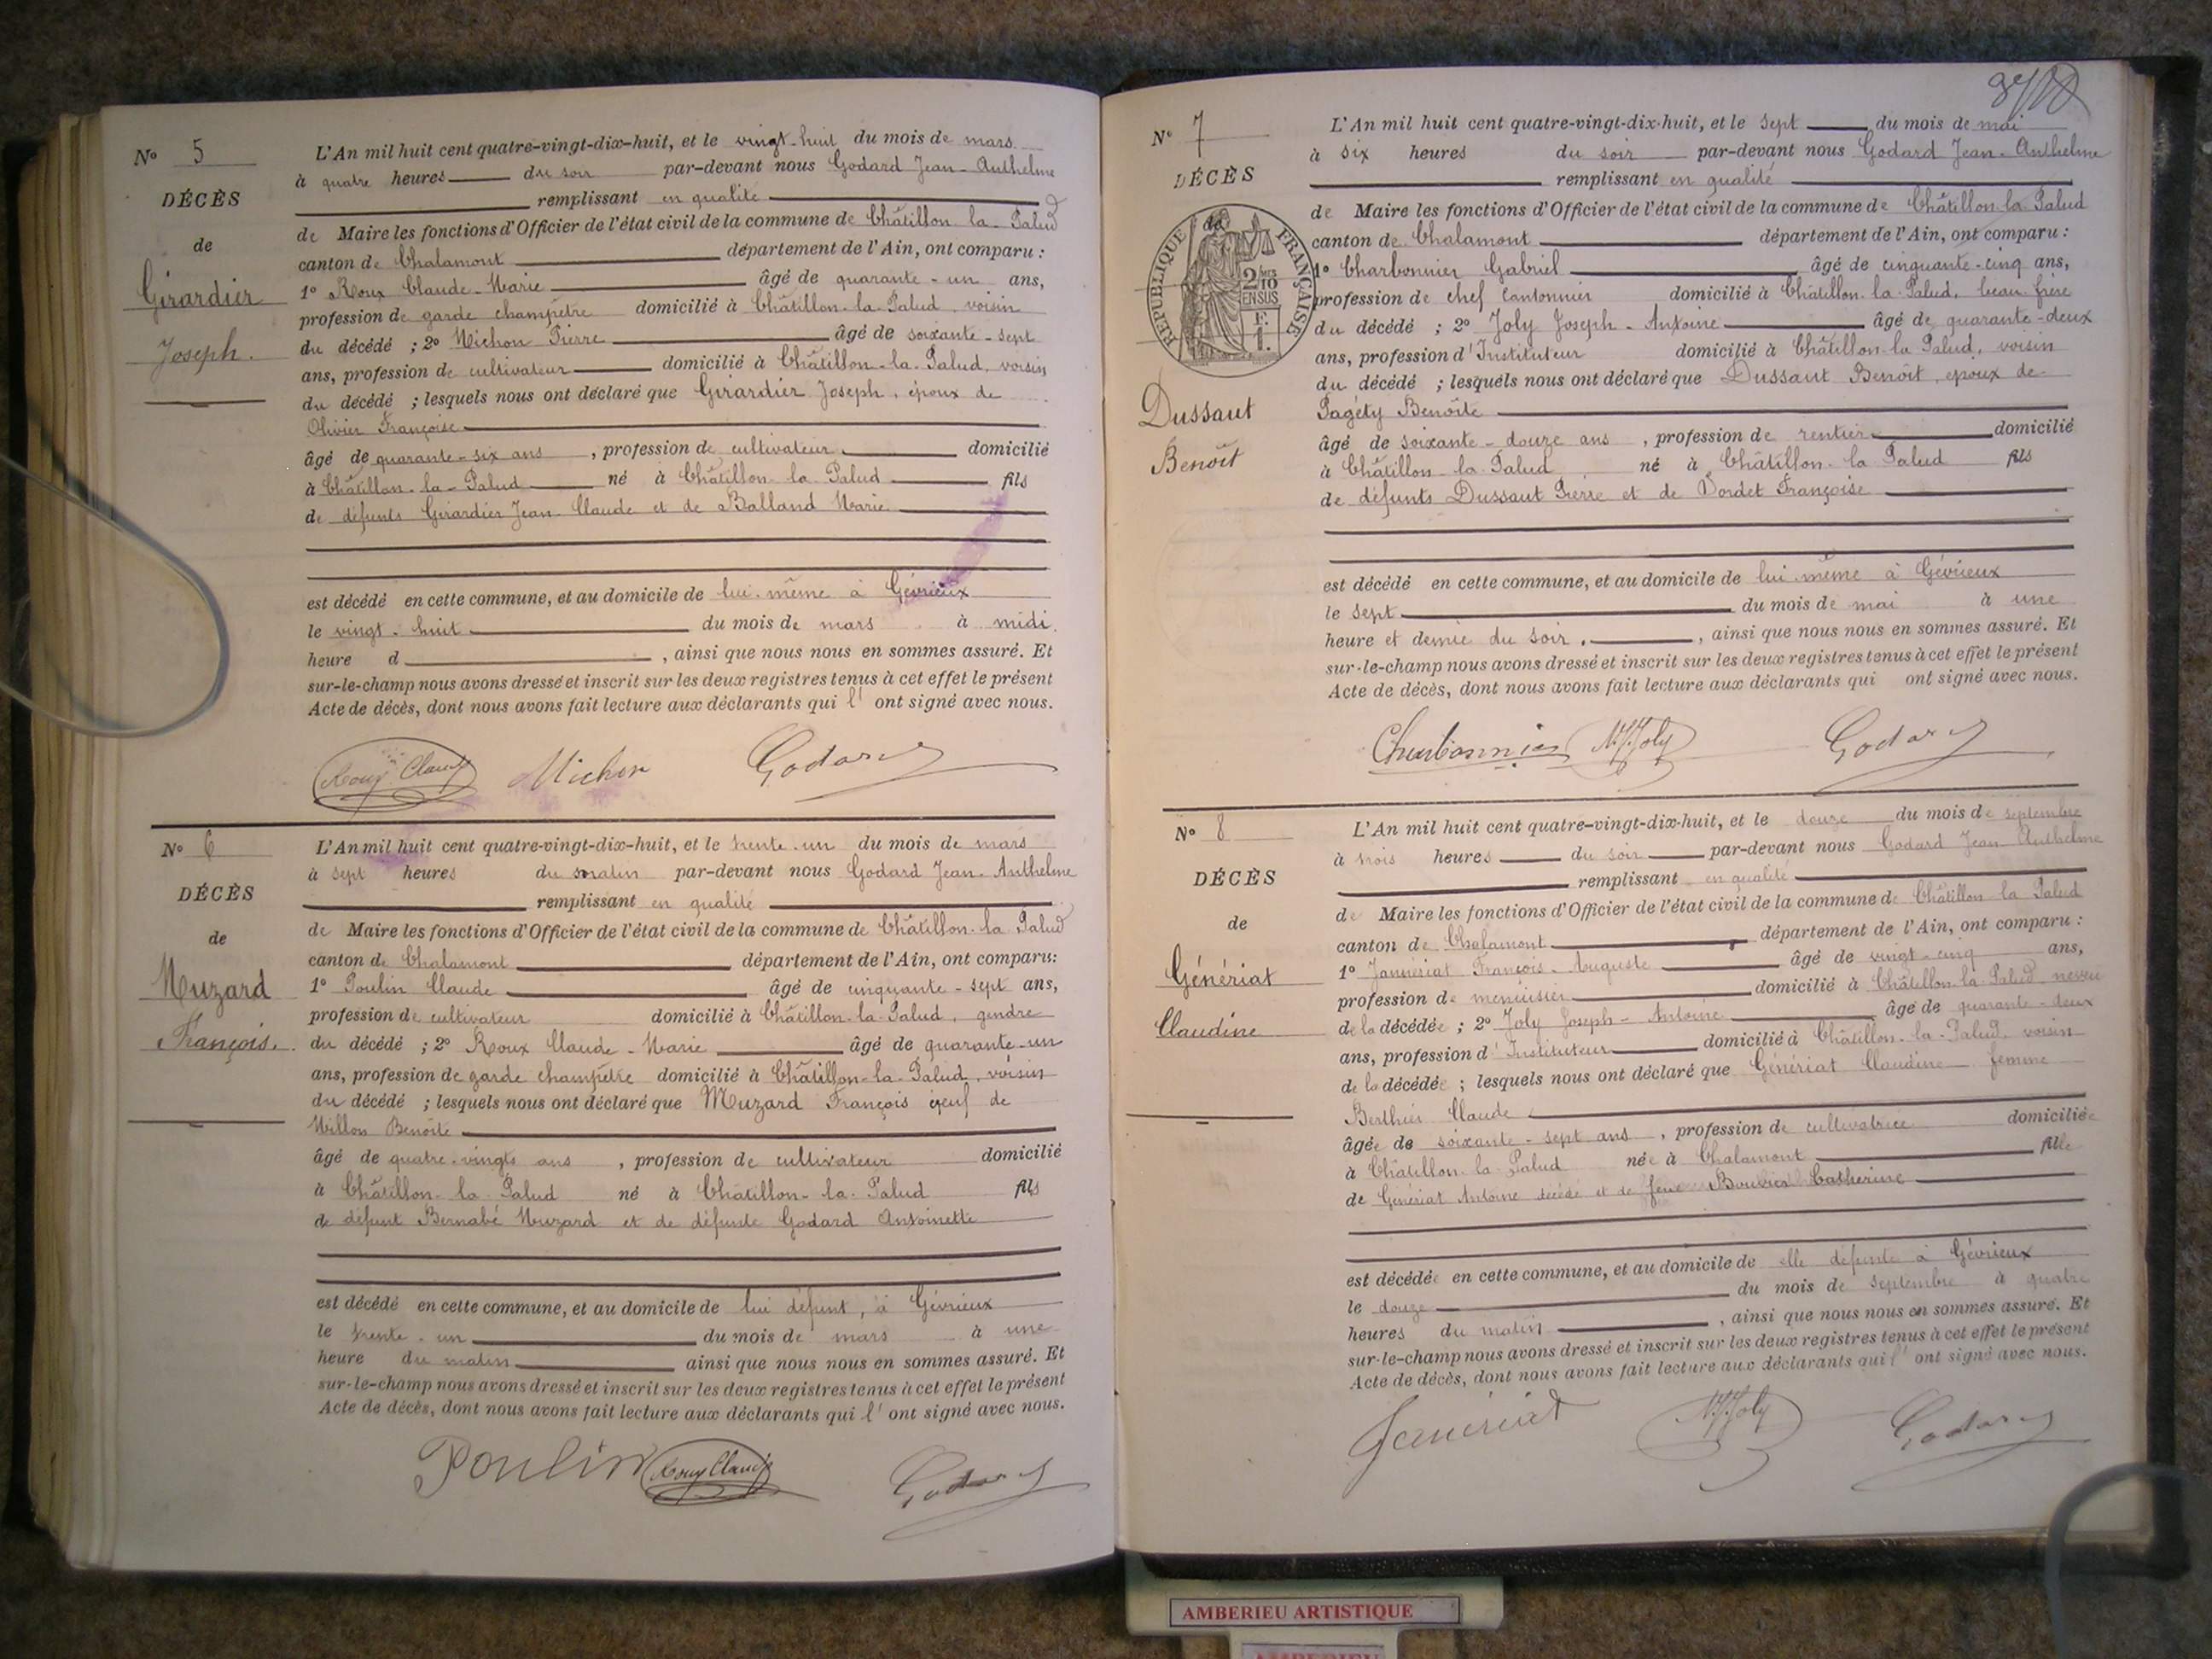 N° 5
DÉCÈS
de
Girardier
Joseph.
L'An mil huit cent quatre-vingt-dix-huit, et le vingt-huit du mois de mars
à quatre heures du soir par-devant nous Godard Jean-Anthelme
remplissant en qualité
de Maire les fonctions d'Officier de l'état civil de la commune de Châtillon-la-Palud
canton de Chalamont département de l'Ain, ont comparu :
1° Roux Claude-Marie âgé de quarante-un ans,
profession de garde champêtre domicilié à Châtillon-la-Palud, voisin
du décédé ; 2° Michon Pierre âgé de soixante-sept
ans, profession de cultivateur domicilié à Châtillon-la-Palud, voisin
du décédé ; lesquels nous ont déclaré que Girardier Joseph, époux de
Olivier Françoise
âgé de quarante-six ans, profession de cultivateur domicilié
à Châtillon-la-Palud né à Châtillon-la-Palud fils
de défunts Girardier Jean-Claude et de Balland Marie
est décédé en cette commune, et au domicile de lui-même à Gévrieux
le vingt-huit du mois de mars à midi
heure d , ainsi que nous nous en sommes assuré. Et
sur-le-champ nous avons dressé et inscrit sur les deux registres tenus à cet effet le présent
Acte de décès, dont nous avons fait lecture aux déclarants qui l' ont signé avec nous.
Roux Claude Michon Godard
N° 6
DÉCÈS
de
Muzard
François.
L'An mil huit cent quatre-vingt-dix-huit, et le trente-un du mois de mars
à sept heures du matin par-devant nous Godard Jean-Anthelme
remplissant en qualité
de Maire les fonctions d'Officier de l'état civil de la commune de Châtillon-la-Palud
canton de Chalamont département de l'Ain, ont comparu:
1° Poulin Claude âgé de cinquante-sept ans,
profession de cultivateur domicilié à Châtillon-la-Palud, gendre
du décédé ; 2° Roux Claude-Marie âgé de quarante-un
ans, profession de garde champêtre domicilié à Châtillon-la-Palud, voisin
du décédé ; lesquels nous ont déclaré que Muzard François veuf de
Millon Benoîte
âgé de quatre-vingts ans , profession de cultivateur domicilié
à Châtillon-la-Palud né à Châtillon-la-Palud fils
de défunt Bernabé Muzard et de défunte Godard Antoinette
est décédé en cette commune, et au domicile de lui défunt, à Gévrieux
le trente-un du mois de mars à une
heure du matin ainsi que nous nous en sommes assuré. Et
sur-le-champ nous avons dressé et inscrit sur les deux registres tenus à cet effet le présent
Acte de décès, dont nous avons fait lecture aux déclarants qui l' ont signé avec nous.
Poulin Roux Claude Godard
N° 7
DÉCÈS
de
RÉPUBLIQUE FRANÇAISE
2/10
EN SUS
Dussaut
Benoît
L'An mil huit cent quatre-vingt-dix-huit, et le sept du mois de mai
à six heures du soir par-devant nous Godard Jean-Anthelme
remplissant en qualité
de Maire les fonctions d'Officier de l'état civil de la commune de Châtillon-la-Palud
canton de Chalamont département de l'Ain, ont comparu :
1° Charbonnier Gabriel âgé de cinquante-cinq ans,
profession de chef cantonnier domicilié à Châtillon-la-Palud, beau-frère
du décédé ; 2° Joly Joseph-Antoine âgé de quarante-deux
ans, profession d'Instituteur domicilié à Châtillon-la-Palud, voisin
du décédé ; lesquels nous ont déclaré que Dussaut Benoît, époux de
Pagéty Benoîte
âgé de soixante-douze ans , profession de rentier domicilié
à Châtillon-la-Palud né à Châtillon-la-Palud fils
de défunts Dussaut Pierre et de Bordet Françoise
est décédé en cette commune, et au domicile de lui-même à Gévrieux
le sept du mois de mai à une
heure et demie du soir. , ainsi que nous nous en sommes assuré. Et
sur-le-champ nous avons dressé et inscrit sur les deux registres tenus à cet effet le présent
Acte de décès, dont nous avons fait lecture aux déclarants qui ont signé avec nous.
Charbonnier Joly Godard
N° 8
DÉCÈS
de
Génériat
Claudine
L'An mil huit cent quatre-vingt-dix-huit, et le douze du mois de septembre
à trois heures du soir par-devant nous Godard Jean-Anthelme
remplissant en qualité
de Maire les fonctions d'Officier de l'état civil de la commune de Châtillon la Palud
canton de Chalamont département de l'Ain, ont comparu :
1° Jannériat François-Auguste âgé de vingt-cinq ans,
profession de menuisier domicilié à Châtillon-la-Palud neveu
de la décédée ; 2° Joly Joseph-Antoine âgé de quarante-deux
ans, profession d'Instituteur domicilié à Châtillon-la-Palud, voisin
de la décédée ; lesquels nous ont déclaré que Génériat Claudine femme
Berthier Claude
âgée de soixante-sept ans , profession de cultivatrice domiciliée
à Châtillon-la-Palud née à Chalamont fille
de Génériat Antoine décédé et de feue Bouvier Catherine
est décédée en cette commune, et au domicile de elle défunte à Gévrieux
le douze du mois de septembre à quatre
heures du matin , ainsi que nous nous en sommes assuré. Et
sur-le-champ nous avons dressé et inscrit sur les deux registres tenus à cet effet le présent
Acte de décès, dont nous avons fait lecture aux déclarants qui l' ont signé avec nous.
Janeriat Joly Godard
AMBERIEU ARTISTIQUE
AMBERIEU